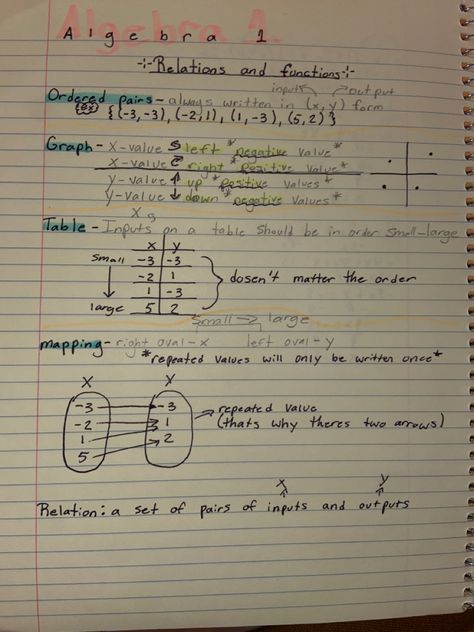 Algebra 1.
Algebra 1
-:- Relations and functions -:-
inputs output
Ordered pairs - always written in (x, y) form
(ex) {(-3,-3), (-2,1), (1,-3), (5,2)}
Graph - X-value left *negative value*
X-value right *positive value*
y-value ↑ up *positive values*
y-value ↓ down *negative values*
Table - Inputs on a table should be in order small-large
x y
small -3 -3
-2 1 dosen't matter the order
1 -3
large 5 2
small → large
mapping - right oval - x left oval - y
*repeated values will only be written once*
X Y
-3 -3 → repeated value
-2 1 (thats why theres two arrows)
1 2
5
x y
Relation: a set of pairs of inputs and outputs